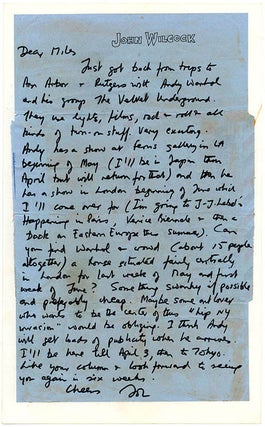 JOHN WILCOCK
Dear Miles
Just got back from trips to
Ann Arbor & Rutgers with Andy Warhol
and his group The Velvet Underground.
They use lights, films, rock & roll & all
kinds of turn-on stuff. Very exciting.
Andy has a show at Ferus gallery in LA
beginning of May (I'll be in Japan then
April but will return for that) and then he
has a show in London beginning of June which
I'll come over for (I'm going to J-J Lebel's
Happening in Paris, Venice Biennale & then a
book on Eastern Europe this summer). Can
you find Warhol & crowd (about 15 people
altogether) a house situated fairly centrally
in London for last week of May and first
week of June? Something swanky if possible
and preferably cheap. Maybe some art lover
who wants to be the centre of this "hip NY
invasion" would be obliging. I think Andy
will get loads of publicity when he arrives.
I'll be here till April 3, then to Tokyo.
Like your column & look forward to seeing
you again in six weeks.
Cheers